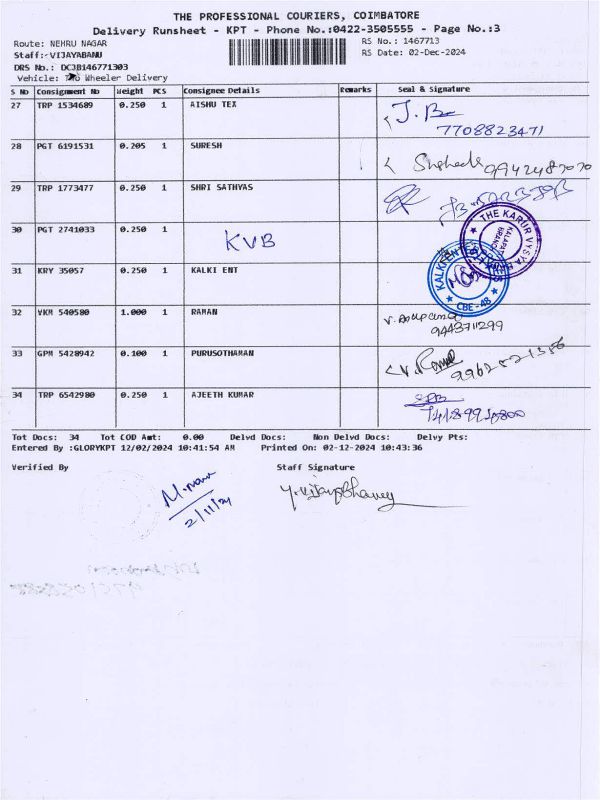 THE PROFESSIONAL COURIERS, COIMBATORE
Delivery Runsheet - KPT - Phone No.:0422-3505555 - Page No.:3
Route: NEHRU NAGAR
RS No.: 1467713
Staff:-VIJAYABANU
RS Date: 02-Dec-2024
DRS No.: DC3B146771303
Vehicle: Two Wheeler Delivery
S No Consignment No Weight PCS Consignee Details Remarks Seal & Signature
27 TRP 1534689 0.250 1 AISHU TEX
7708823471
28 PGT 6191531 0.205 1 SURESH
29 TRP 1773477 0.250 1 SHRI SATHYAS
30 PGT 2741033 0.250 1
KVB
THE KARUR VYSYA
31 KRY 35057 0.250 1 KALKI ENT
CBE-48
32 VKM 540580 1.000 1 RAMAN
9443711299
33 GPM 5428942 0.100 1 PURUSOTHAMAN
34 TRP 6542980 0.250 1 AJEETH KUMAR
Tot Docs: 34 Tot COD Amt: 0.00 Delvd Docs: Non Delvd Docs: Delvy Pts:
Entered By :GLORYKPT 12/02/2024 10:41:54 AM Printed On: 02-12-2024 10:43:36
Verified By
Staff Signature
2/11/24